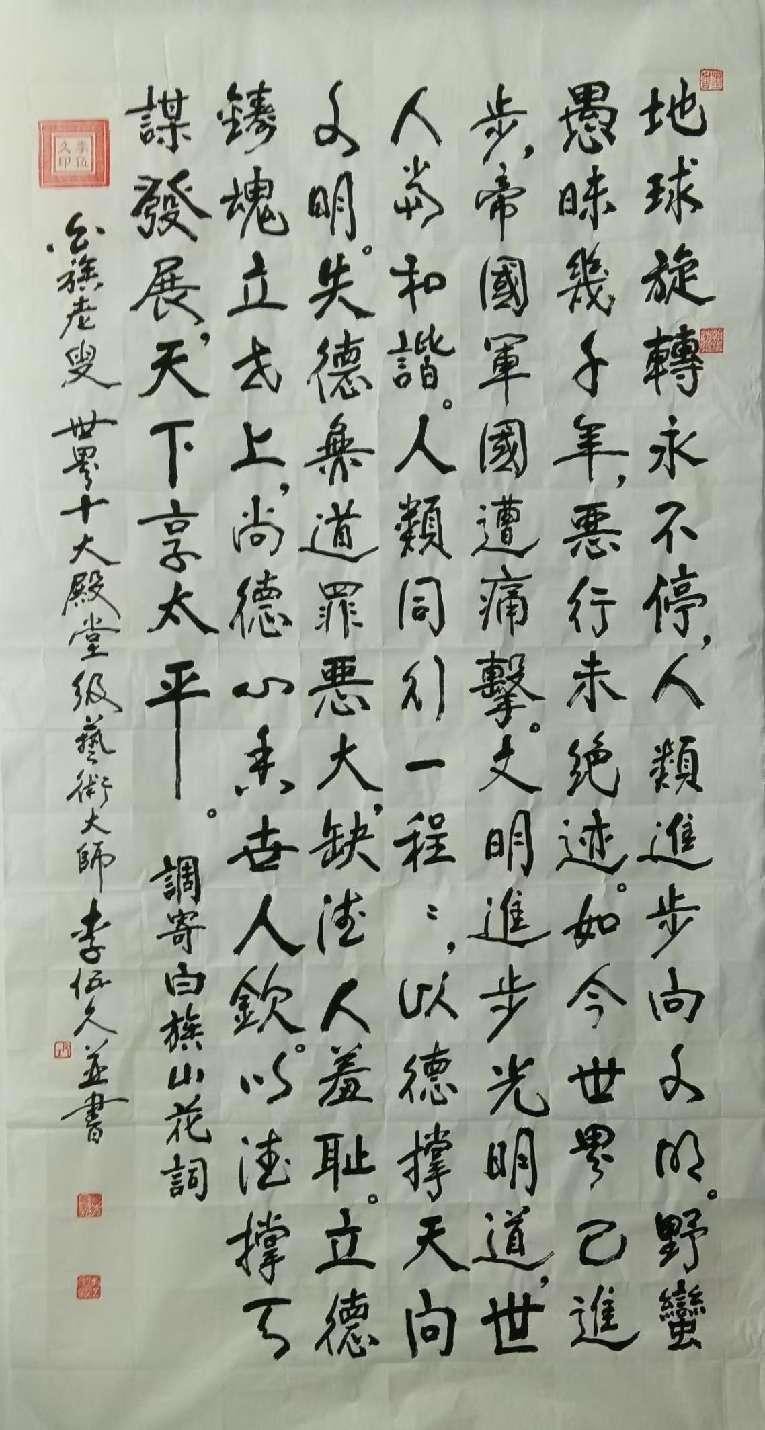 地球旋轉永不停,人類進步向文明。野蠻
愚昧幾千年,悪行未絶迹。如今世界已進
步,帝國軍國遭痛擊。文明進步光明道,世
人和諧。人類同行一程〻,以德撑天向
文明。失德無道罪悪大,缺德人羞耻。立德
鑄魂立上,尚德心香世人欽。以德撑天
謀發展,天下享太平。
調寄白族山花詞
白族老叟 世界十大殿堂級藝術大師 李伍久並書
李伍久印